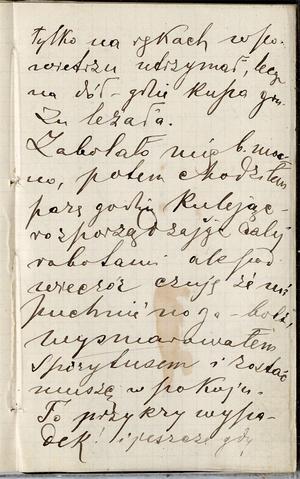 tylko na rękach w po-
wietrzu utrzymał, lecz
na dół - gdzie kupa gru-
zu leżała.
Zabolało mię b. moc-
no, potem chodziłem
parę godzin kulejąc -
rozporządzając dalej
robotami ale pod
wieczór czuję że mi
puchnie noga - boli,
wysmarowałem
spirytusem i zostać
muszę w pokoju.
To przykry wypa-
dek! i jeszcze gdy